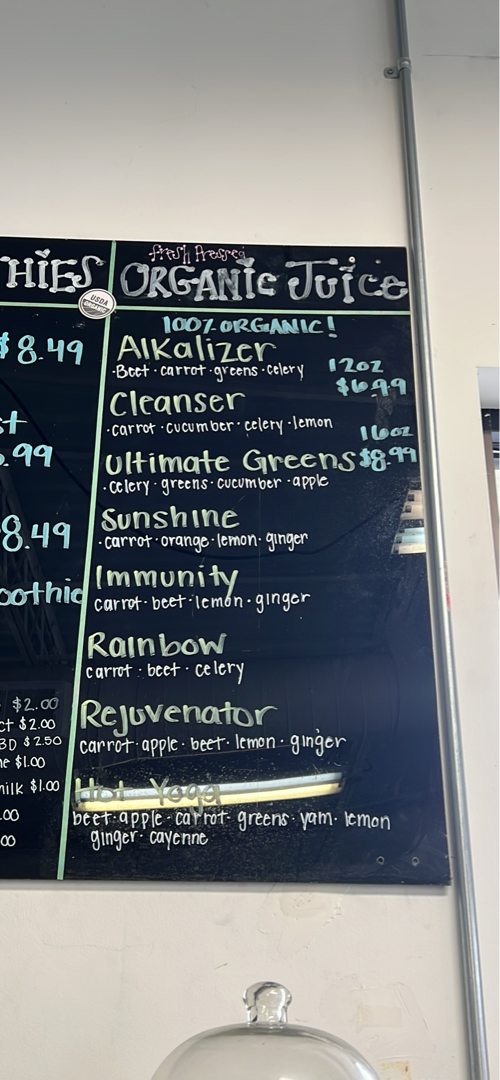 THIES
$8.49
st
.99
8.49
oothie
$2.00
ct $2.00
3D $2.50
ne $1.00
milk $1.00
.00
00
USDA
ORGANIC
fresh Pressed
ORGANIC JUICE
100% ORGANIC!
Alkalizer
·Beet·carrot·greens·celery
12oz
$6.99
Cleanser
·carrot·cucumber·celery·lemon
16oz
Ultimate Greens $8.99
·celery·greens·cucumber·apple
Sunshine
·carrot·orange·lemon·ginger
Immunity
carrot·beet·lemon·ginger
Rainbow
carrot·beet·celery
Rejuvenator
carrot·apple·beet·lemon·ginger
Hot Yoga
beet·apple·carrot·greens·yam·lemon
ginger·cayenne